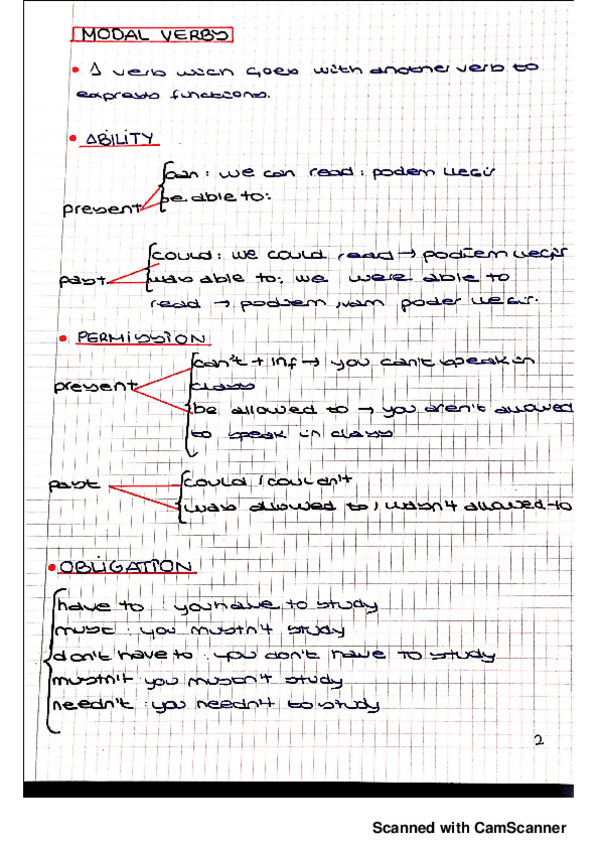 MODAL VERBS
• A verb wich goes with another verb to
express functions.
• ABILITY
can: we can read: podem llegir
present
be able to:
could: we could read → podíem llegir
past
was able to: we were able to
read → podíem, vam poder llegir.
• PERMISSION
can't + inf → you can't speak in
present
class
be allowed to → you aren't allowed
to speak in class
past
could / couldn't
was allowed to / wasn't allowed to
• OBLIGATION
have to : you have to study
must : you mustn't study
don't have to : you don't have to study
mustn't you mustn't study
needn't : you needn't to study
2
Scanned with CamScanner